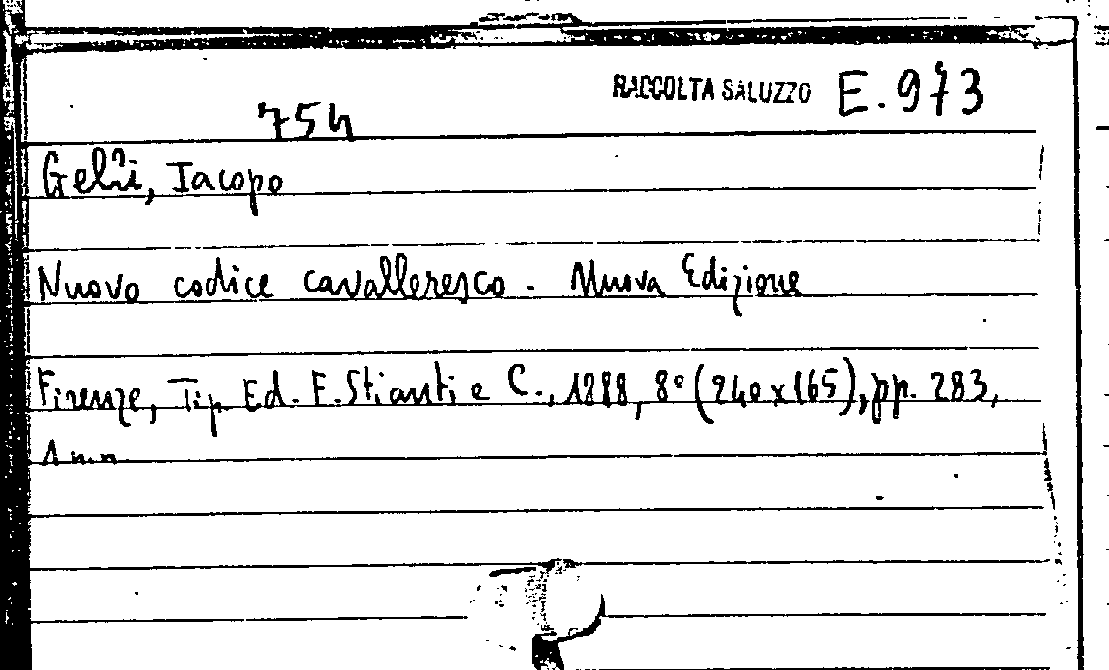 RACCOLTA SALUZZO E.973
754
Gelli, Iacopo
Nuovo codice cavalleresco - Nuova Edizione
Firenze, Tip. Ed. E. Stianti e C., 1888, 8° (240x165), pp. 283,
1 n.n.